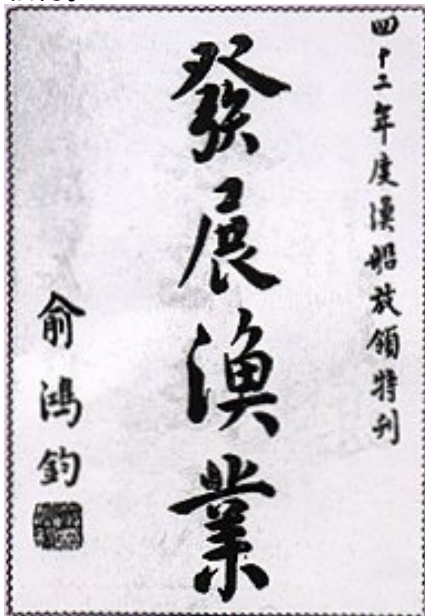 四十二年度漁船放領特刊
發展漁業
俞鴻鈞